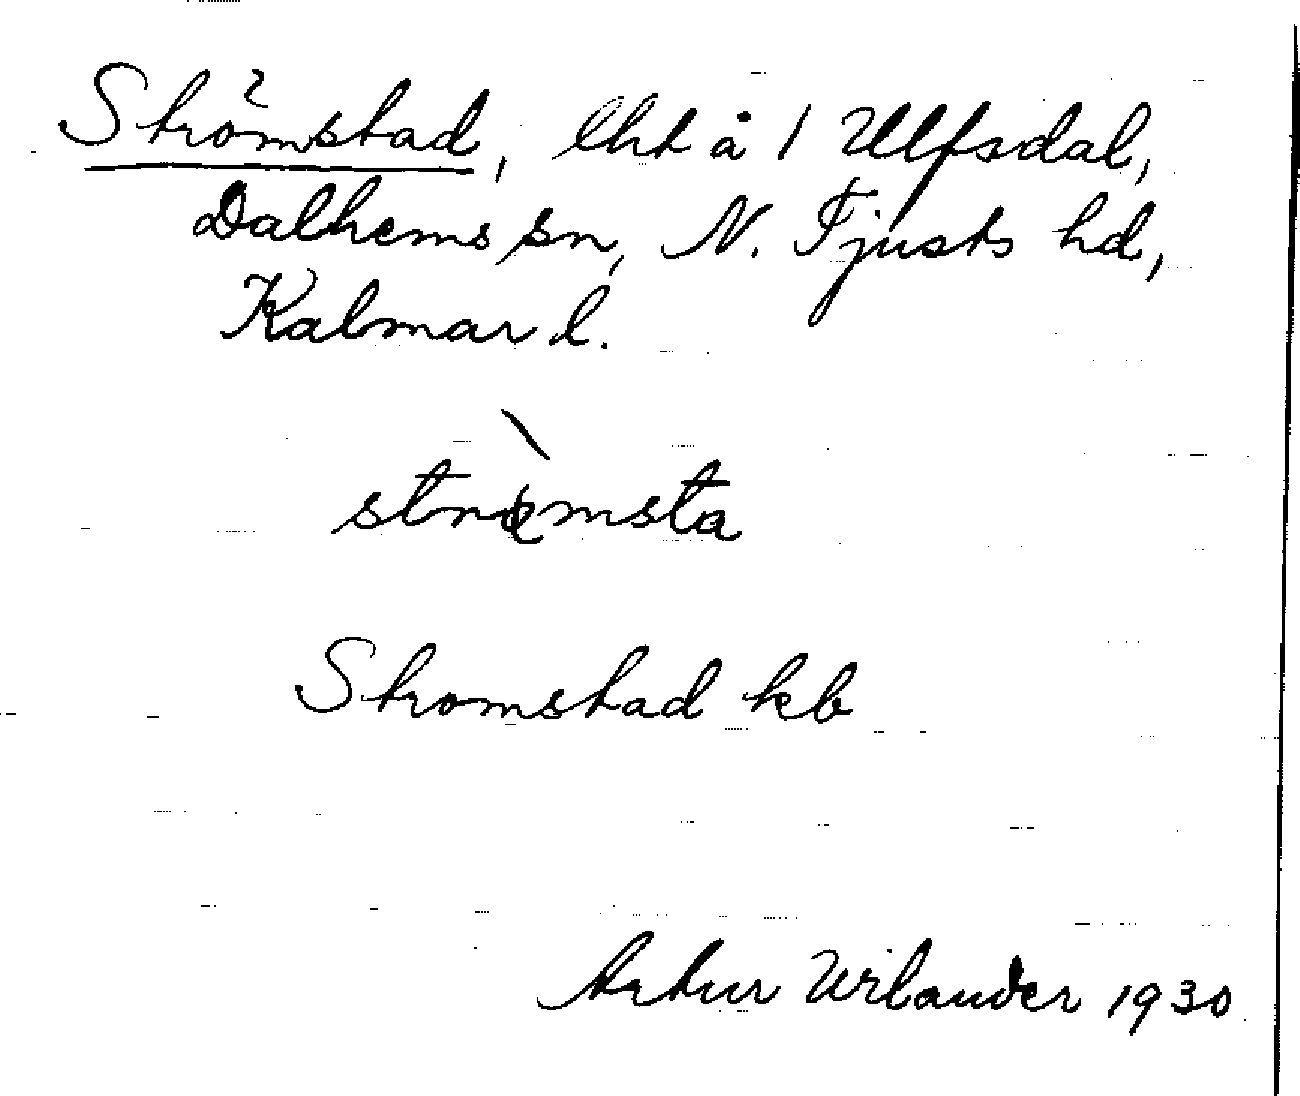 Strömstad, lht å 1 Ulfsdal,
Dalhems sn, N. Tjusts hd,
Kalmar l.
strömsta
Stromstad kb
Artur Wilander 1930